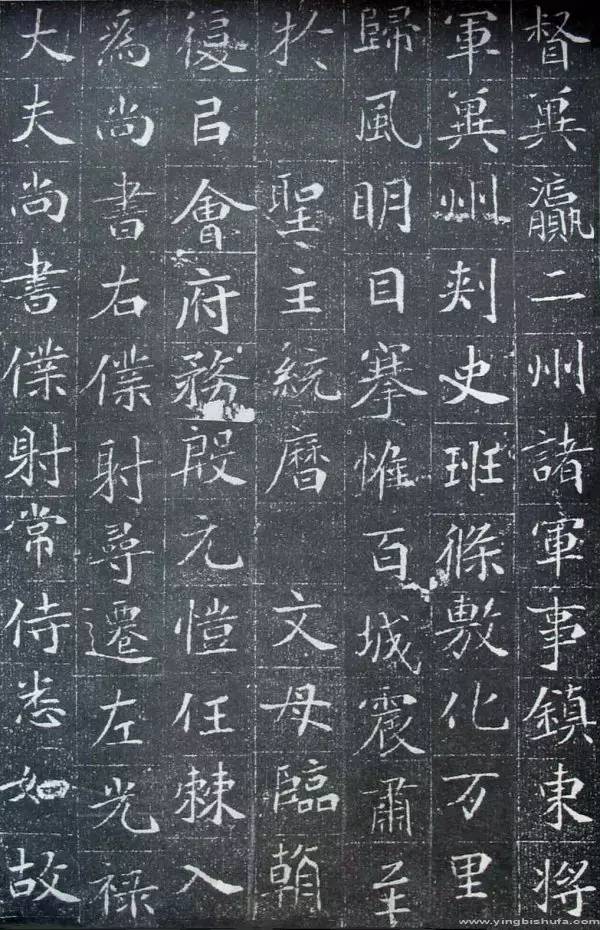 督冀瀛二州諸軍事鎮東將
軍冀州刾史班條敷化万里
歸風明目搴惟百城震肅至
扵 聖主統曆 文母臨朝
復㠯會府務殷元愷任棘入
爲尚書右僕射尋遷左光祿
大夫尚書僕射常侍悉如故
www.yingbishufa.com